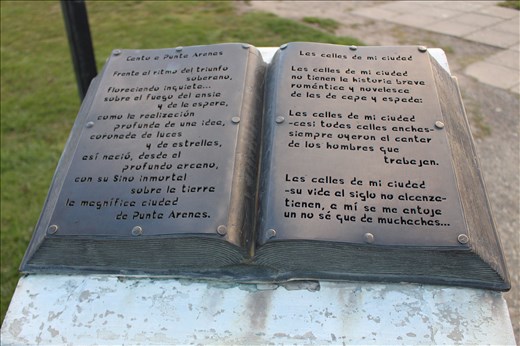 Canto a Punta Arenas
Frente al ritmo del triunfo
soberano,
floreciendo inquieta...
sobre el fuego del ansia
y de la espera,
como la realización
profunda de una idea,
coronada de luces
y de estrellas,
así nació, desde el
profundo arcano,
con su Sino inmortal
sobre la tierra
la magnífica ciudad
de Punta Arenas.
Las calles de mi ciudad
Las calles de mi ciudad
no tienen la historia brava
romántica y novelesca
de las de capa y espada:
Las calles de mi ciudad
-casi todas calles anchas-
siempre oyeron el cantar
de los hombres que
trabajan.
Las calles de mi ciudad
-su vida al siglo no alcanza-
tienen, a mí se me antoja
un no sé qué de muchachas...